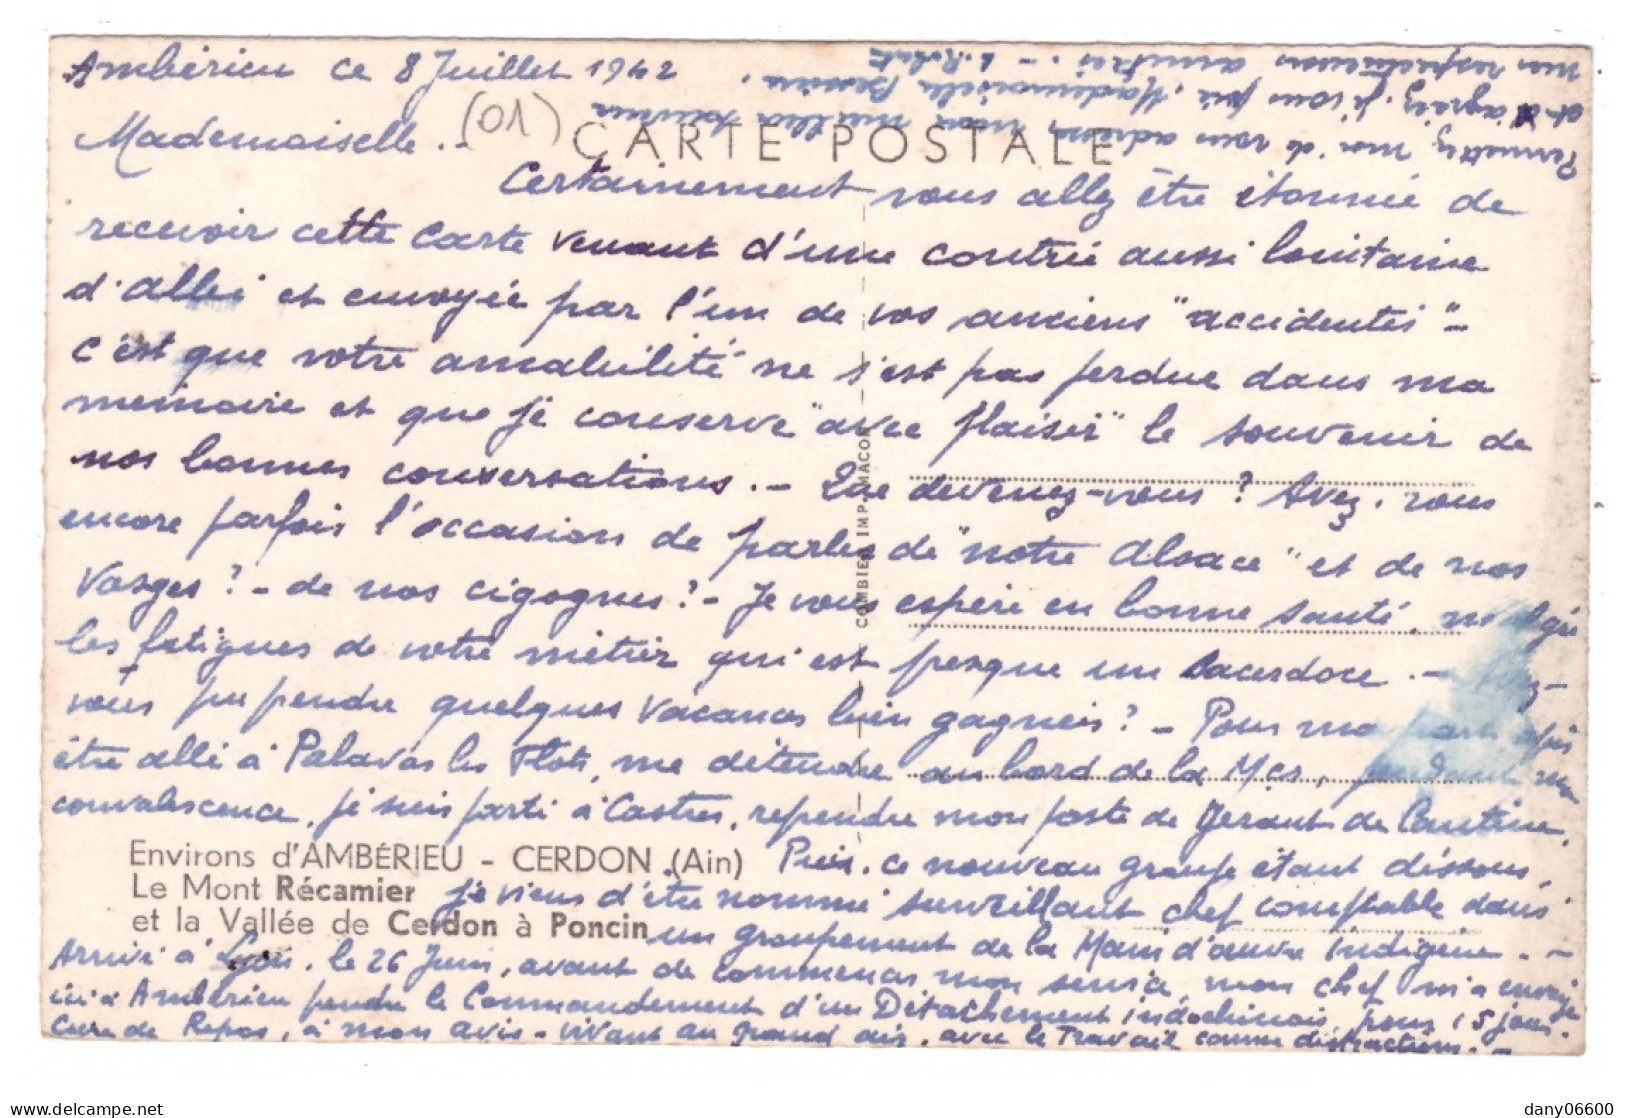 Ambérieu ce 8 Juillet 1942
(01)
CARTE POSTALE
Mademoiselle. -
Certainement vous allez être étonnée de
recevoir cette carte venant d'une contrée aussi lointaine
d'allei et envoyée par l'un de vos anciens "accidentés" -
c'est que votre amabilité ne s'est pas perdue dans ma
mémoire et que je conserve "avec plaisir" le souvenir de
nos bonnes conversations. - Que devenez-vous ? Avez-vous
encore parfois l'occasion de parler de "notre Alsace" et de nos
Vosges ? - de nos cigognes ? - Je vous espère en bonne santé, malgré
les fatigues de votre métier qui est presque un Sacerdoce. -
vous pu pendre quelques vacances bien gagnées ? - Pour
être allé à Palavas les Flots, me détendre au bord de la Mer, pendant ma
convalescence, je suis parti à Castres, rependre mon poste de Gerant de Cantine.
Puis, ce nouveau groupe étant dissous,
je viens d'être nommé surveillant chef comptable dans
un groupement de la Main d'œuvre indigène. -
Arrivé à Lyon, le 26 Juin, avant de commencer mon service, mon chef m'a envoyé
ici à Ambérieu pendre le Commandement d'un Détachement indochinois, pour 15 jours.
Cure de Repos, à mon avis - vivant au grand air, avec le Travail comme distractions. -
Permettez moi de vous adresser mon meilleur souvenir
et d'agréer, je vous prie, Mademoiselle
mes respectueuses amitiés. - L. Robert
Environs d'AMBÉRIEU - CERDON (Ain)
Le Mont Récamier
et la Vallée de Cerdon à Poncin
COMBIER IMP. MACON
delcampe.net
dany06600